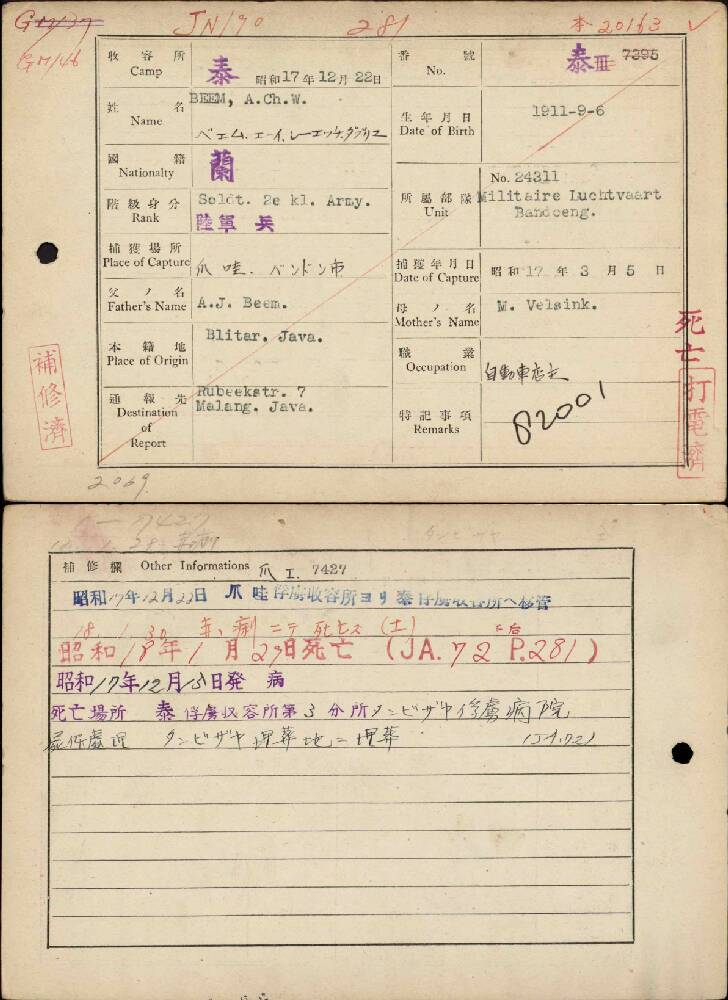 GM137
GM146
JN190
281
本 20163
收容所 Camp 泰 昭和17年12月22日
番號 No. 泰III 7395
姓名 Name BEEM, A.Ch.W.
ベエム.エーイ.シーエッチ.ダブリユー
生年月日 Date of Birth 1911-9-6
國籍 Nationalty 蘭
階級身分 Rank Soldt. 2e kl. Army.
陸軍 兵
所屬部隊 Unit No. 24311
Militaire Luchtvaart
Bandoeng.
捕獲場所 Place of Capture 爪哇. バンドン市
捕獲年月日 Date of Capture 昭和17年3月5日
父ノ名 Father's Name A.J. Beem.
母ノ名 Mother's Name M. Velsink.
本籍地 Place of Origin Blitar. Java.
職業 Occupation 自動車
通報先 Destination of Report Rubeekstr. 7
Malang. Java.
特記事項 Remarks 82001
補修濟
死亡
打電濟
2069
7427
補修欄 Other Informations 爪I. 7427
昭和17年12月22日 爪哇俘虜收容所ヨリ泰俘虜收容所ヘ移管
18.1.30 赤痢ニテ死亡ス (土)
昭和18年1月29日死亡 (JA.72 P.281)
昭和17年12月15日発病
死亡場所 泰俘虜収容所第3分所タンビザヤ俘虜病院
屍体處理 タンビザヤ埋葬地ニ埋葬 (JA.72)